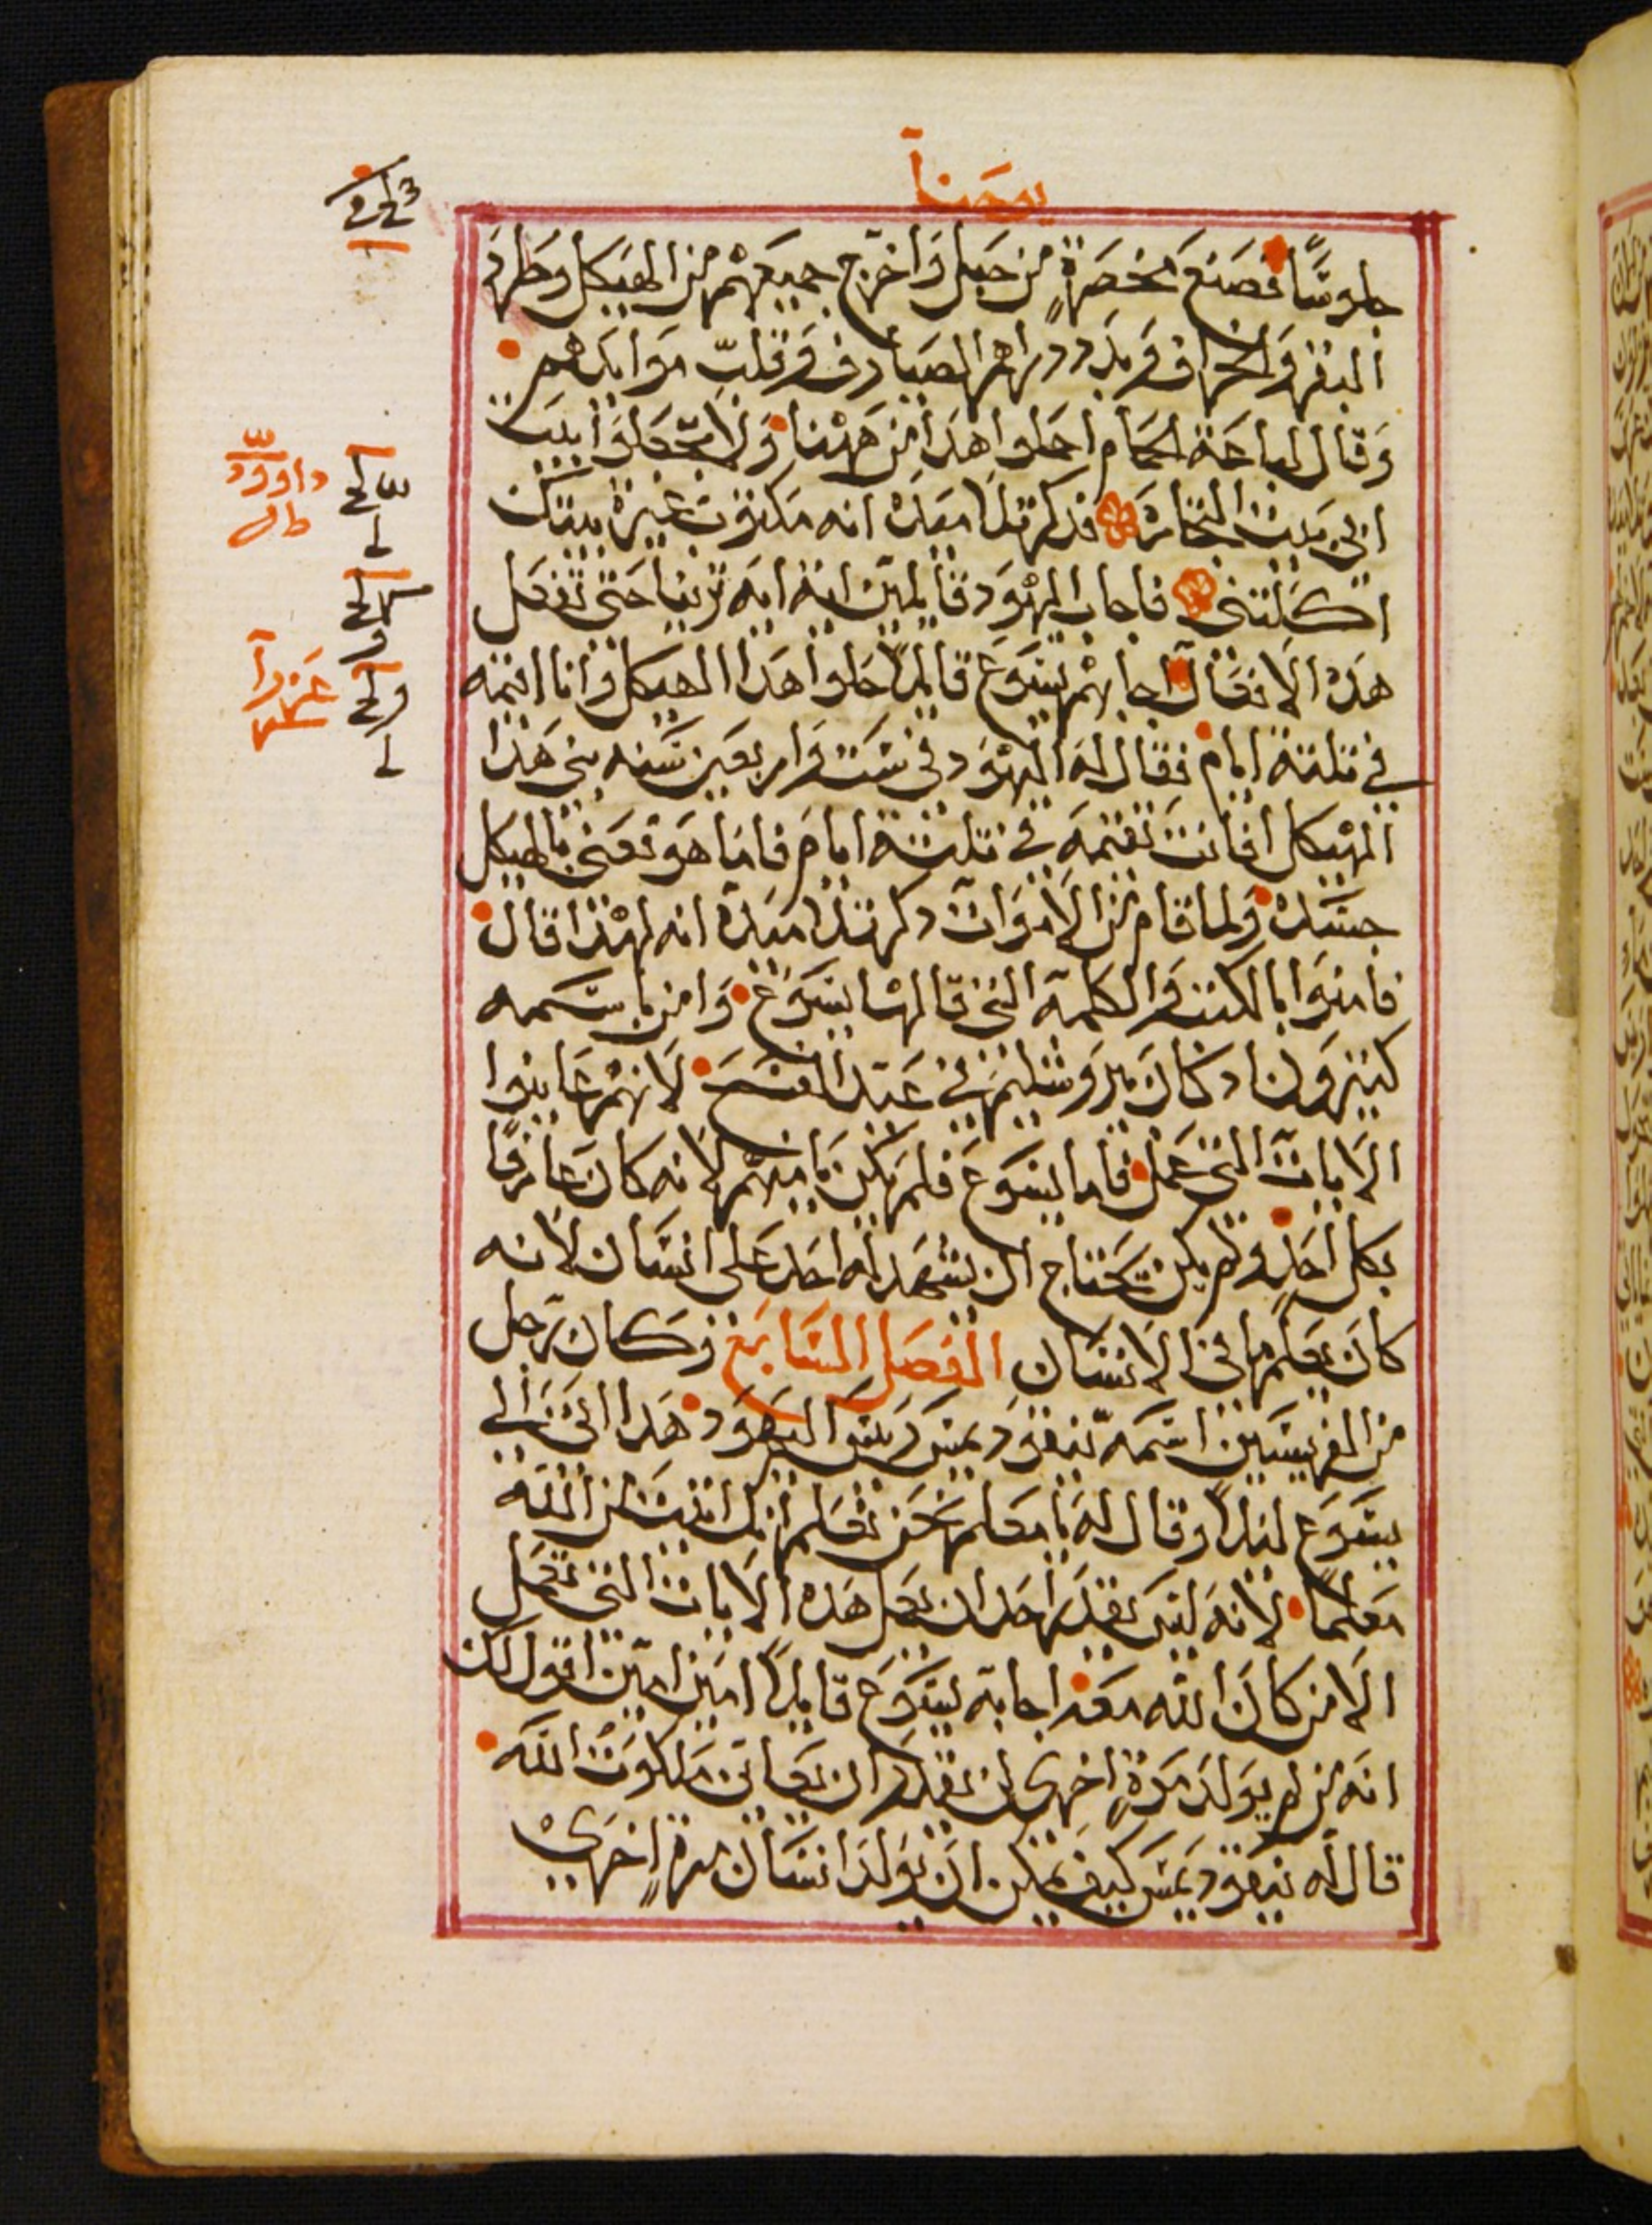 يوحنا
جلوسًا فصنع مخصرةٍ من حبل واخرج جميعهم من الهيكل وطرد
البقر والخراف وبدد دراهم الصيارف وقلب موايدهم
وقال لباعة الحمام احملوا هذا من ههنا ولا تجعلوا بيت
ابي بيت التجارة فذكر تلاميذه انه مكتوب غيرة بيتك
اكلتني فاجاب اليهود قايلين اية ايه ترينا حتى تفعل
هذه الافعال اجابهم يسوع قايلاً حلوا هذا الهيكل وانا اقيمه
في تلتة ايام فقال له اليهود في ست واربعين سنه بني هذا
الهيكل افانت تقيمه في تلتة ايام فاما هو فعني بالهيكل
جسده ولما قام من الاموات ذكر تلاميذه انه لهذا قال
فامنوا بالكتب والكلمة التي قالها يسوع وامن باسمه
كتيرون اذ كان بيروشليم في عيد الفسح لانهم عاينوا
الايات التي عمل فاما يسوع فلم يكن يامنهم لانه كان عارفًا
بكل احدٍ ولم يكن يحتاج ان يشهد له احد على انسان لانه
كان يعلم ما في الانسان الفصل السابع وكان رجل
من الفريسيين اسمه نيقوديمس رييس اليهود هذا اتى الى
يسوع ليلاً وقال له يا معلم نحن نعلم انك اتيت من الله
معلمًا لانه ليس يقدر احد ان يعمل هذه الايات التي تعمل
الا من كان الله معه اجابه يسوع قايلاً امين امين اقول لك
انه من لم يولد مرةٍ اخرى لن يقدر ان يعاين ملكوت الله
قال له نيقوديمس كيف يمكن ان يولد انسان مرةٍ اخرى
داوود